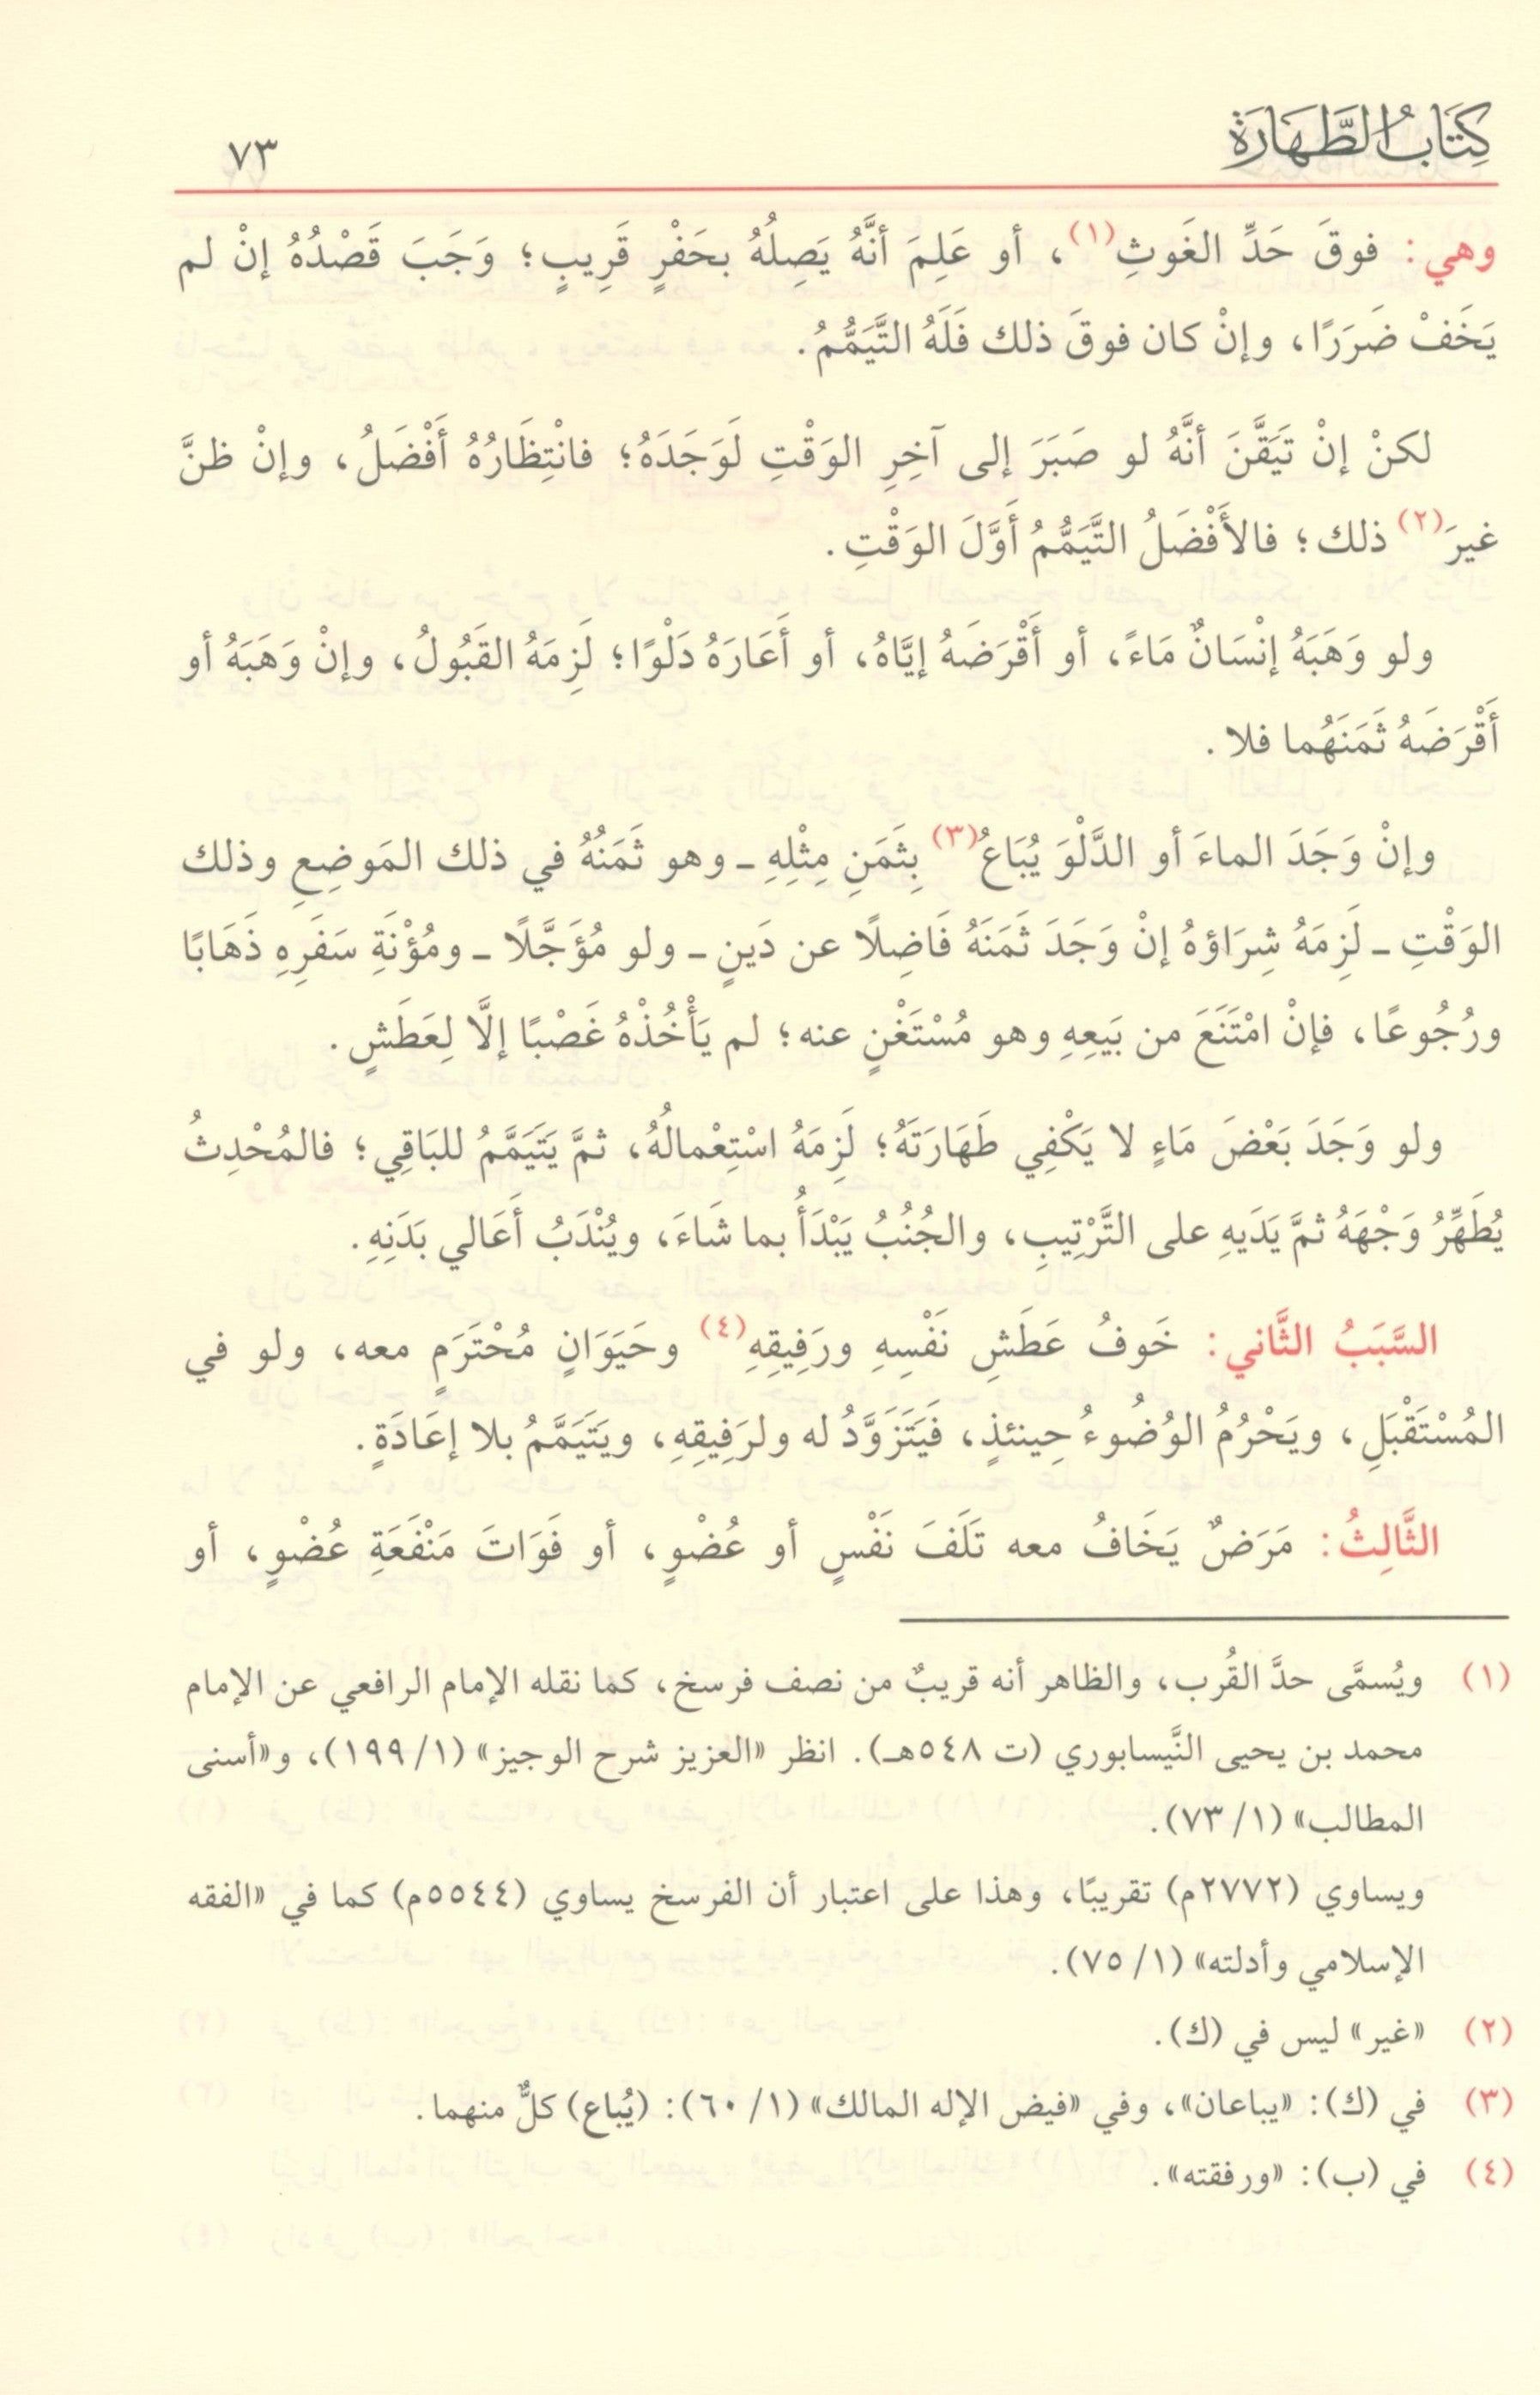 كِتَابُ الطَّهَارَة
٧٣
وهي: فوقَ حَدِّ الغَوثِ(١)، أو عَلِمَ أنَّهُ يَصِلُهُ بحَفْرٍ قَرِيبٍ؛ وَجَبَ قَصْدُهُ إنْ لم
يَخَفْ ضَرَرًا، وإنْ كان فوقَ ذلك فَلَهُ التَّيَمُّمُ.
لكنْ إنْ تَيَقَّنَ أنَّهُ لو صَبَرَ إلى آخِرِ الوَقْتِ لَوَجَدَهُ؛ فانْتِظَارُهُ أَفْضَلُ، وإنْ ظنَّ
غيرَ(٢) ذلك؛ فالأَفْضَلُ التَّيَمُّمُ أَوَّلَ الوَقْتِ.
ولو وَهَبَهُ إنْسَانٌ مَاءً، أو أَقْرَضَهُ إيَّاهُ، أو أَعَارَهُ دَلْوًا؛ لَزِمَهُ القَبُولُ، وإنْ وَهَبَهُ أو
أَقْرَضَهُ ثَمَنَهُما فلا.
وإنْ وَجَدَ الماءَ أو الدَّلْوَ يُبَاعُ(٣) بِثَمَنِ مِثْلِهِ ـ وهو ثَمَنُهُ في ذلك المَوضِعِ وذلك
الوَقْتِ ـ لَزِمَهُ شِرَاؤهُ إنْ وَجَدَ ثَمَنَهُ فَاضِلًا عن دَينٍ ـ ولو مُؤَجَّلًا ـ ومُؤْنَةِ سَفَرِهِ ذَهَابًا
ورُجُوعًا، فإنْ امْتَنَعَ من بَيعِهِ وهو مُسْتَغْنٍ عنه؛ لم يَأْخُذْهُ غَصْبًا إلَّا لِعَطَشٍ.
ولو وَجَدَ بَعْضَ مَاءٍ لا يَكْفِي طَهَارَتَهُ؛ لَزِمَهُ اسْتِعْمالُهُ، ثمَّ يَتَيَمَّمُ للبَاقِي؛ فالمُحْدِثُ
يُطَهِّرُ وَجْهَهُ ثمَّ يَدَيهِ على التَّرْتِيبِ، والجُنُبُ يَبْدَأُ بما شَاءَ، ويُنْدَبُ أَعَالي بَدَنِهِ.
السَّبَبُ الثَّاني: خَوفُ عَطَشِ نَفْسِهِ ورَفِيقِهِ(٤) وحَيَوَانٍ مُحْتَرَمٍ معه، ولو في
المُسْتَقْبَلِ، ويَحْرُمُ الوُضُوءُ حِينئذٍ، فَيَتَزَوَّدُ له ولرَفِيقِهِ، ويَتَيَمَّمُ بلا إعَادَةٍ.
الثَّالِثُ: مَرَضٌ يَخَافُ معه تَلَفَ نَفْسٍ أو عُضْوٍ، أو فَوَاتَ مَنْفَعَةِ عُضْوٍ، أو
(١) ويُسمَّى حدَّ القُرب، والظاهر أنه قريبٌ من نصف فرسخ، كما نقله الإمام الرافعي عن الإمام
محمد بن يحيى النَّيسابوري (ت ٥٤٨هـ). انظر «العزيز شرح الوجيز» (١/ ١٩٩)، و«أسنى
المطالب» (١/ ٧٣).
ويساوي (٢٧٧٢م) تقريبًا، وهذا على اعتبار أن الفرسخ يساوي (٥٥٤٤م) كما في «الفقه
الإسلامي وأدلته» (١/ ٧٥).
(٢) «غير» ليس في (ك).
(٣) في (ك): «يباعان»، وفي «فيض الإله المالك» (١/ ٦٠): (يُباع) كلٌّ منهما.
(٤) في (ب): «ورفقته».